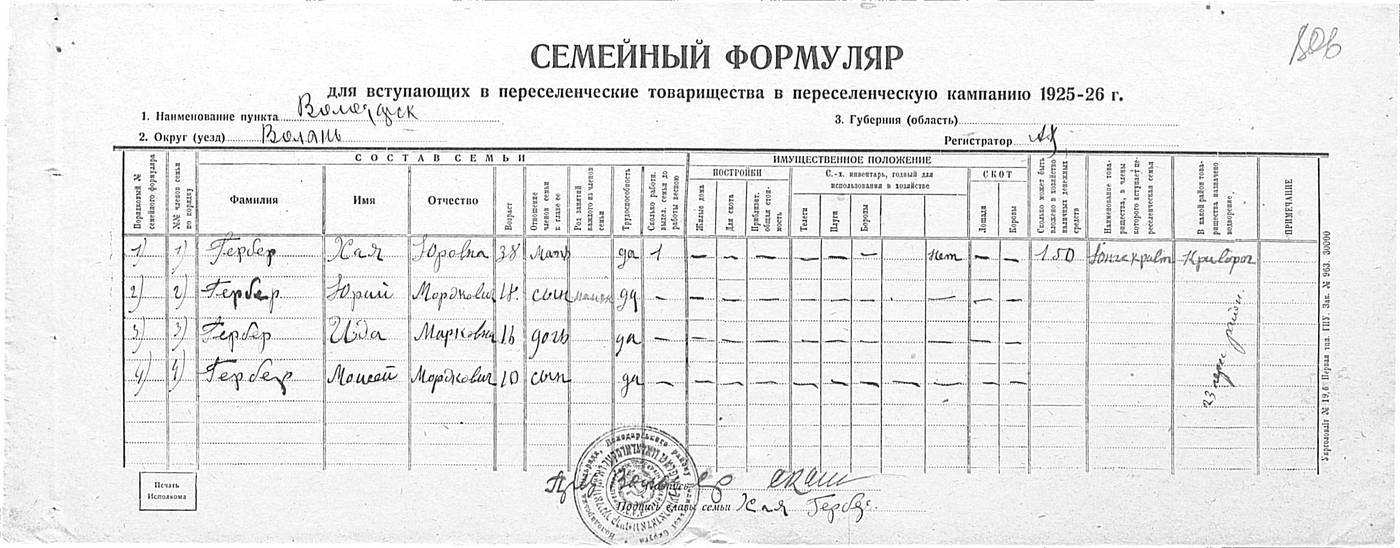 СЕМЕЙНЫЙ ФОРМУЛЯР
для вступающих в переселенческие товарищества в переселенческую кампанию 1925-26 г.
1. Наименование пункта
3. Губерния (область)
2. Округ (уезд) Волынь
Регистратор
СОСТАВ СЕМЬИ
ИМУЩЕСТВЕННОЕ ПОЛОЖЕНИЕ
ПОСТРОЙКИ
С.-х. инвентарь, годный для использования в хозяйстве
СКОТ
Порядковый № семейного формуляра
№№ членов семьи по порядку
Фамилия
Имя
Отчество
Возраст
Отношение членов семьи к главе ее
Род занятий каждого из членов семьи
Трудоспособность
Сколько работн. выдел. семья до работы весною
Жилые дома
Для скота
Приблизит. общая стоимость
Телеги
Плуги
Бороны
Лошади
Коровы
Сколько может быть вложено в хозяйство наличных денежных средств
Наименование товарищества, в члены которого вступает переселенческая семья
В какой район товарищества назначено водворение
ПРИМЕЧАНИЕ
1) 1) Гербер Хая Юровна 38 Мать да 1 — — — — — — нет — — 150 Криворог
2) 2) Гербер Юрий Мордкович 18 сын да — — — — — — — — — —
3) 3) Гербер Ида Марковна 16 дочь да — — — — — — — — — —
4) 4) Гербер Моисей Мордкович 10 сын да — — — — — — — — — — —
Печать Исполкома
Подпись главы семьи Хая Гербер
Укрголовліт № 19,6 Первая тип. ГПУ. Зак. № 963. 30000